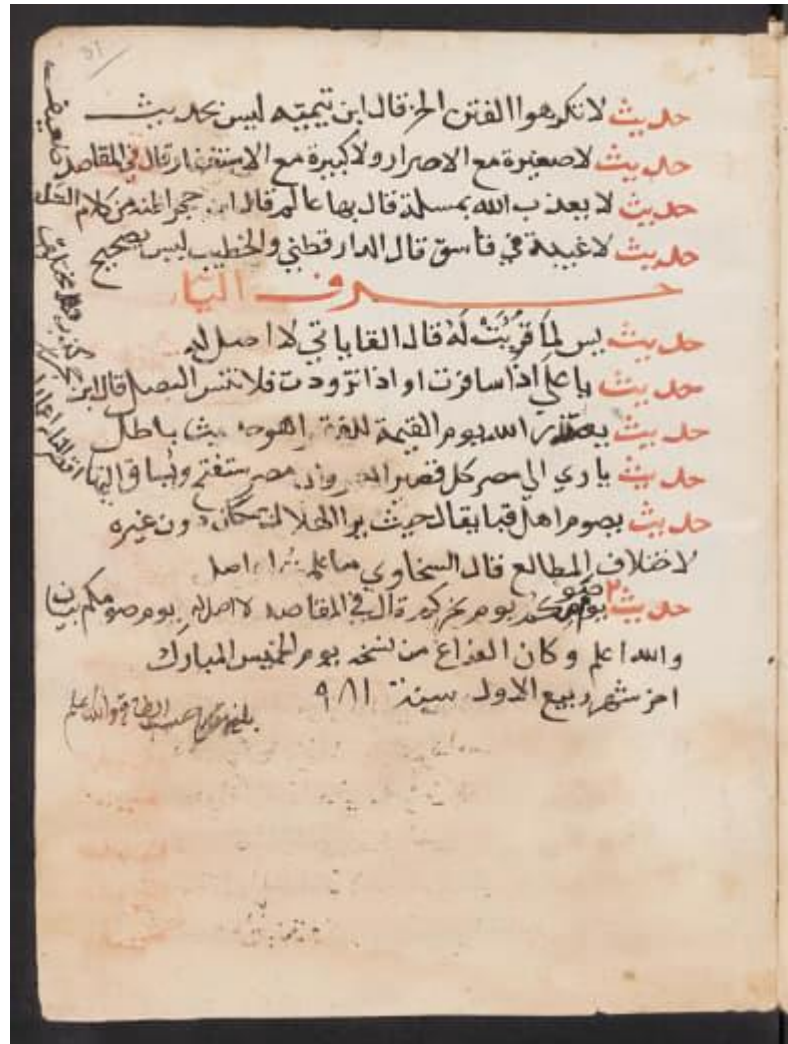 حديث لا تكرهوا الفتن الخ قال ابن تيميه ليس بحديث
حديث لا صغيرة مع الاصرار ولا كبيرة مع الاستغفار قال في المقاصد ضعيف
حديث لا يعذب الله بمسلة قال بها عالم قال ابن حجر انه من كلام
حديث لا غيبة في فاسق قال الدارقطني والخطيب ليس بصحيح
حرف اليا
حديث يس لما قرئت له قال القاياتي لا اصل له
حديث يا علي اذا سافرت او اذا تزودت فلا تنس البصل قال ابن
حديث يعتذر الله يوم القيمة للفقرا هو حديث باطل
حديث ياوي الي مصر كل قصير العمر وان مصر ستفتح ويساق اليها اقصر الناس اعمارا
حديث يصوم اهل قبا يقال حيث يرا الهلال بمكان دون غيره
لاختلاف المطالع قال السخاوي ما علمت له اصل
حديث يوم صومكم يوم نحركم قال في المقاصد لا اصل له يوم صومكم
والله اعلم وكان الفراغ من نسخه يوم الخميس المبارك
اخر شهر ربيع الاول سنة ٩٨١
والله اعلم